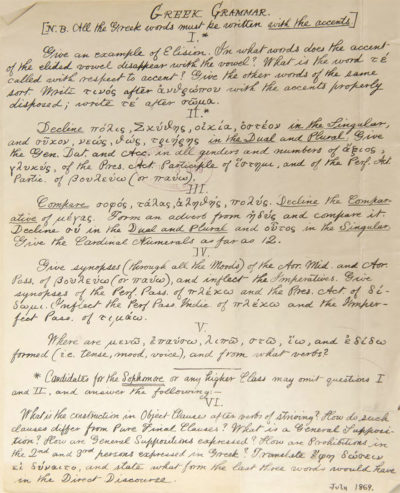 GREEK GRAMMAR.
[N.B. All the Greek words must be written with the accents]
I.*
Give an example of Elision. In what words does the accent
of the elided vowel disappear with the vowel? What is the word τέ
called with respect to accent? Give the other words of the same
sort. Write τινός after ἀνθρώπων with the accents properly
disposed; write τέ after σῶμα.
II.*
Decline πόλις, Σκύθης, οἰκία, ὀστέον in the Singular,
and σῦκον, νεώς, θώς, τριήρης in the Dual and Plural. Give
the Gen. Dat. and Acc. in all genders and numbers of ἄξιος,
γλυκύς, of the Pres. Act Participle of ἵστημι, and of the Perf. Act.
Partic. of βουλεύω (or παύω).
III.
Compare σοφός, τάλας, ἀληθής, πολύς. Decline the Compar-
ative of μέγας. Form an adverb from ἡδύς and compare it.
Decline σύ in the Dual and Plural and οὗτος in the Singular.
Give the Cardinal Numerals as far as 12.
IV.
Give synopses (through all the Moods) of the Aor. Mid. and Aor.
Pass. of βουλεύω (or παύω), and inflect the Imperatives. Give
synopses of the Perf. Pass. of πλέκω and the Pres. Act of δί-
δωμι. Inflect the Perf Pass Indic of πλέκω and the Imper-
fect Pass. of τιμάω.
V.
Where are μενῶ, ἐπαύσω, λιπῶ, στῶ, ἴω, and ἐδίδω
formed (i.e. tense, mood, voice), and from what verbs?
* Candidates for the Sophomore or any higher Class may omit questions I
and II, and answer the following:—
VI.
What is the construction in Object Clauses after verbs of striving? How do such
clauses differ from Pure Final Clauses? What is a General Supposi-
tion? How are General Suppositions expressed? How are Prohibitions in
the 2nd and 3rd persons expressed in Greek? Translate ἔφη δώσειν
εἰ δύναιτο, and state what form the last three words would have
in the Direct Discourse.
July 1869.